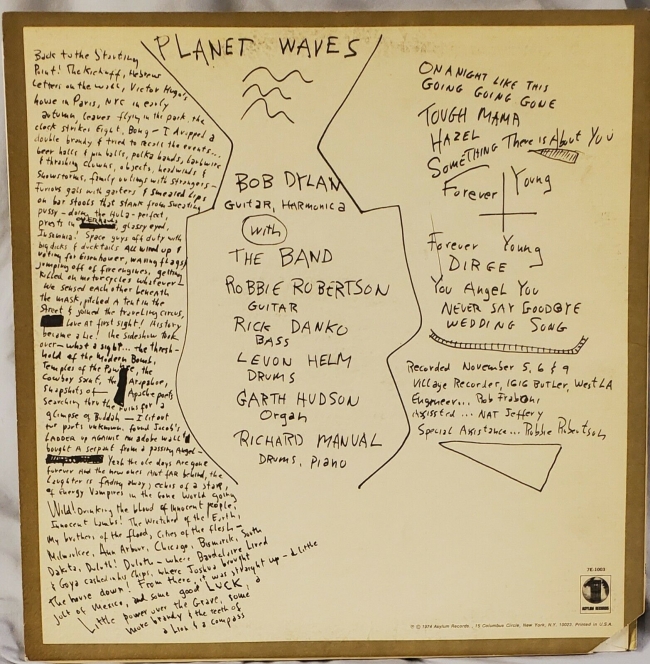 PLANET WAVES
Back to the Starting
Point! The Kickoff, Hebrew
letters on the wall, Victor Hugo's
house in Paris, NYC in early
autumn, leaves flying in the park, the
clock strikes Eight, Bong— I dropped a
double brandy & tried to recall the events...
beer halls & pin balls, polka bands, barbwire
& thrashing clowns, objects, headwinds &
snowstorms, family outings with strangers—
Furious gals with garters & smeared lips
on bar stools that stank from sweating
pussy— doing the Hula— perfect,
priests in, glassy eyed,
Insomnia! Space guys off duty with
big dicks & ducktails All wired up &
voting for Eisenhower, waving flags &
jumping off of fire engines, getting
killed on motorcycles whatever—
We sensed each other beneath
the mask, pitched a tent in the
Street & joined the traveling circus,
Love at first sight! History
became a Lie! the sideshow took
over— what a sight... the thresh-
hold of the Modern Bomb,
Temples of the Pawnee, the
Cowboy saint, the Arapahoe,
snapshots of Apache poets
searching thru the ruins for a
glimpse of Buddah— I lit out
for parts unknown, found Jacob's
LADDER up AGAINST AN adobe wall &
bought A serpent from a passing Angel—
Yeah the ole days Are gone
forever And the new ones Aint fAR behind, the
Laughter is fading away, echos of a staR,
of Energy Vampires in the Gone World going
Wild! Drinking the blood of innocent people,
Innocent Lambs! The Wretched of the Earth,
My brothers of the flood, Cities of the flesh—
Milwaukee, Ann Arbor, Chicago, Bismarck, South
Dakota, Duluth! Duluth— where Baudelaire Lived
& Goya cashed in his Chips, where Joshua brought
The house down! From there, it was straight up— a little
jolt of Mexico, and some good LUCK, a
Little power over the Grave, some
more brandy & the teeth of
a Lion & a compass
BOB DYLAN
GUITAR, HARMONICA
With
THE BAND
ROBBIE ROBERTSON
GUITAR
RICK DANKO
BASS
LEVON HELM
DRUMS
GARTH HUDSON
Organ
RICHARD MANUAL
DRUMS, PIANO
ON A NIGHT LIKE THIS
GOING GOING GONE
TOUGH MAMA
HAZEL
SOMETHING There is About You
Forever Young
Forever Young
DIRGE
You Angel You
NEVER SAY GOODBYE
WEDDING SONG
Recorded November 5, 6 & 9
Village Recorder, 1616 BUTLER, West LA
Engeneer... Rob Fraboni
Assisted... NAT Jeffery
Special Assistance... Robbie Robertson
7E-1003
ASYLUM RECORDS
℗ © 1974 Asylum Records, 15 Columbus Circle, New York, N.Y. 10023. Printed in U.S.A.